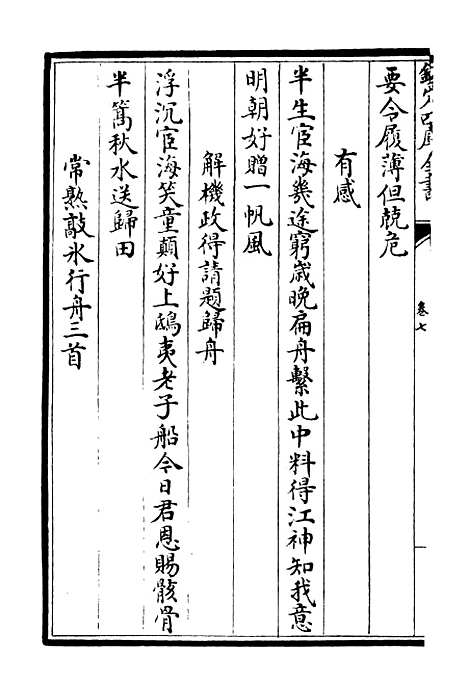 欽定四庫全書
卷七
要令履薄但兢危
有感
半生宦海幾途窮歳晩扁舟繫此中料得江神知我意
明朝好贈一帆風
解機政得請題歸舟
浮沉宦海笑童顛好上鴟夷老子船今日君恩賜骸骨
半篙秋水送歸田
常熟敲氷行舟三首